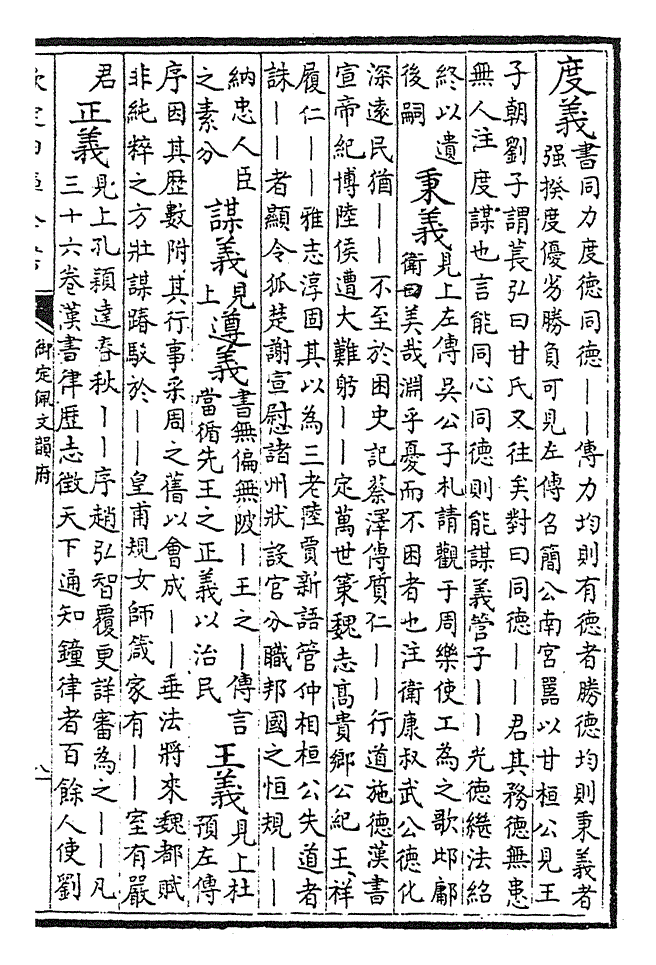 度義 書同力度德同德——傳力均則有德者勝德均則秉義者
强揆度優劣勝負可見左傳召簡公南宮嚚以甘桓公見王
子朝劉子謂萇弘曰甘氏又往矣對曰同德——君其務德無患
無人注度謀也言能同心同德則能謀義管子——光德繼法紹
終以遺
後嗣
秉義 見上左傳吳公子札請觀于周樂使工為之歌邶鄘
衛曰美哉淵乎憂而不困者也注衛康叔武公德化
深遠民猶——不至於困史記蔡澤傳質仁——行道施德漢書
宣帝紀博陸侯遭大難躬——定萬世策魏志高貴鄉公紀王祥
履仁——雅志淳固其以為三老陸賈新語管仲相桓公失道者
誅——者顯令狐楚謝宣慰諸州狀設官分職邦國之恒規——
納忠人臣
之素分
謀義 見上
遵義 書無偏無陂—王之—傳言
當循先王之正義以治民
王義 見上杜
預左傳
序因其歷數附其行事采周之舊以會成——垂法將來魏都賦
非純粹之方壯謀踳駁於——皇甫規女師箴家有——室有嚴
君
正義 見上孔穎達春秋——序趙弘智覆更詳審為之——凡
三十六卷漢書律歷志徵天下通知鐘律者百餘人使劉
御定佩文韻府